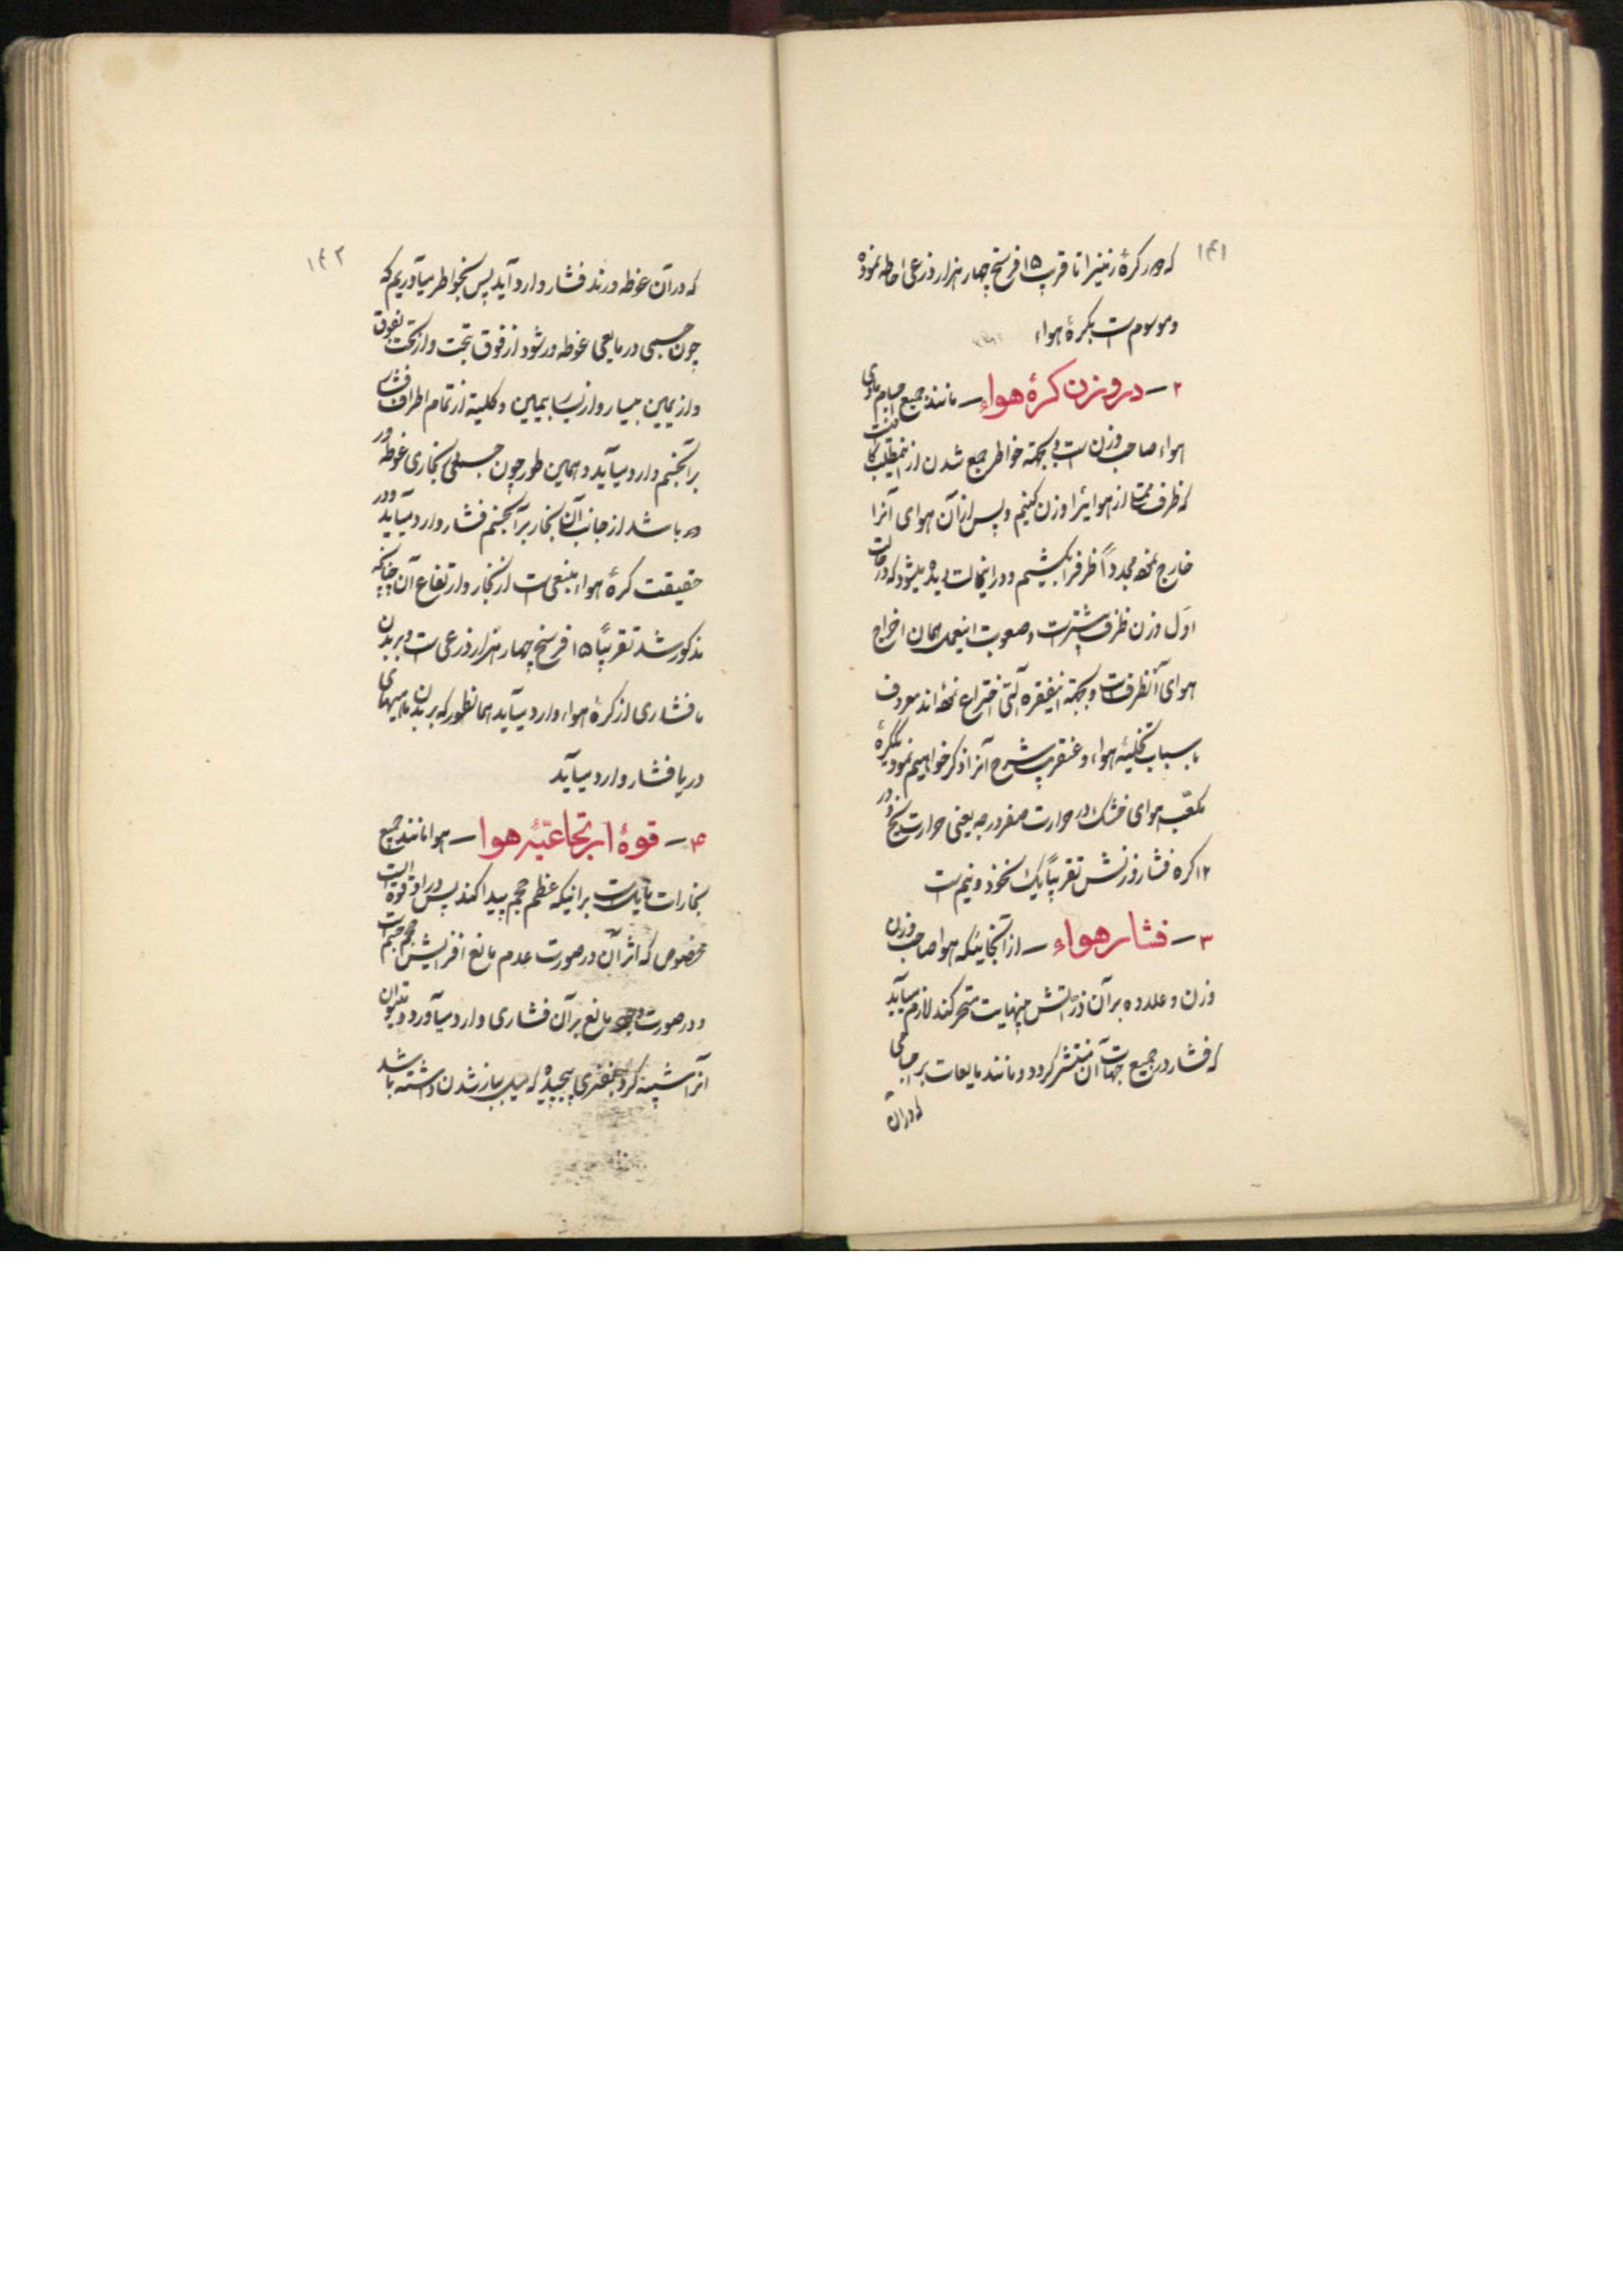 ۱۴۱
که دور کرهٔ زمین را تا قریب ۱۵ فرسخ چهار هزار ذرعی احاطه نموده
و موسوم است بکرهٔ هواء
۲ – در وزن کرهٔ هواء – مانند جمیع اجسام مادی
هواء صاحب وزن است و بجهته خاطر جمع شدن از این مطلب کافیست
که ظرف ممتلا از هوائیرا وزن کنیم و پس از آن هوای آنرا
خارج نموده مجدداً ظرفرا بکشیم و در اینحالت دیده میشود که در حالت
اول وزن ظرف بیشتر است و صعوبت اینعمل همان اخراج
هوای آنظرفست و بجهته اینفقره آلتی اختراع نموده‌اند معروف
باسباب تخلیهٔ هواء و عنقریب شرح آنرا ذکر خواهیم نمود یکگرهٔ
مکعب هوای خشک در حرارت صفر درجه یعنی حرارت یخ و در
۱۲ کره فشار وزنش تقریباً یک نخود و نیم است
۳ – فشار هواء – از آنجائیکه هوا صاحب وزن
وزن و علاوه بر آن ذراتش بینهایت متحرکند لازم میآید
که فشار در جمیع جهات آن منتشر گردد و مانند مایعات بر اجسامی
که در آن
۱۴۲
که در آن غوطه‌ورند فشار وارد آید پس بخواطر میآوریم که
چون جسمی در مایعی غوطه‌ور شود از فوق بتحت و از تحت بفوق
و از یمین بیسار و از یسار بیمین و کلیة از تمام اطراف فشار
بر آنجسم وارد میآید و همین طور چون جسمی در بخاری غوطه‌ور
باشد از جانب آن بخار بر آنجسم فشار وارد میآید و در
حقیقت کرهٔ هواء منبعی است از بخار و ارتفاع آن چنانکه
مذکور شد تقریباً ۱۵ فرسخ چهار هزار ذرعی است و بر بدن
ما فشاری از کرهٔ هواء وارد میآید همانطور که بر بدن ماهیهای
دریا فشار وارد میآید
۴ – قوهٔ ارتجاعیهٔ هوا – هوا مانند جمیع
بخارات مایل است بر اینکه عظم حجم پیدا کند پس در او قوه ایست
مخصوص که اثر آن در صورت عدم مانع افزایش حجم جسم است
و در صورت وجود مانع بر آن فشاری وارد میآورد و میتوان
آنرا تشبیه کرد بفنری پیچیده که میل بباز شدن داشته باشد